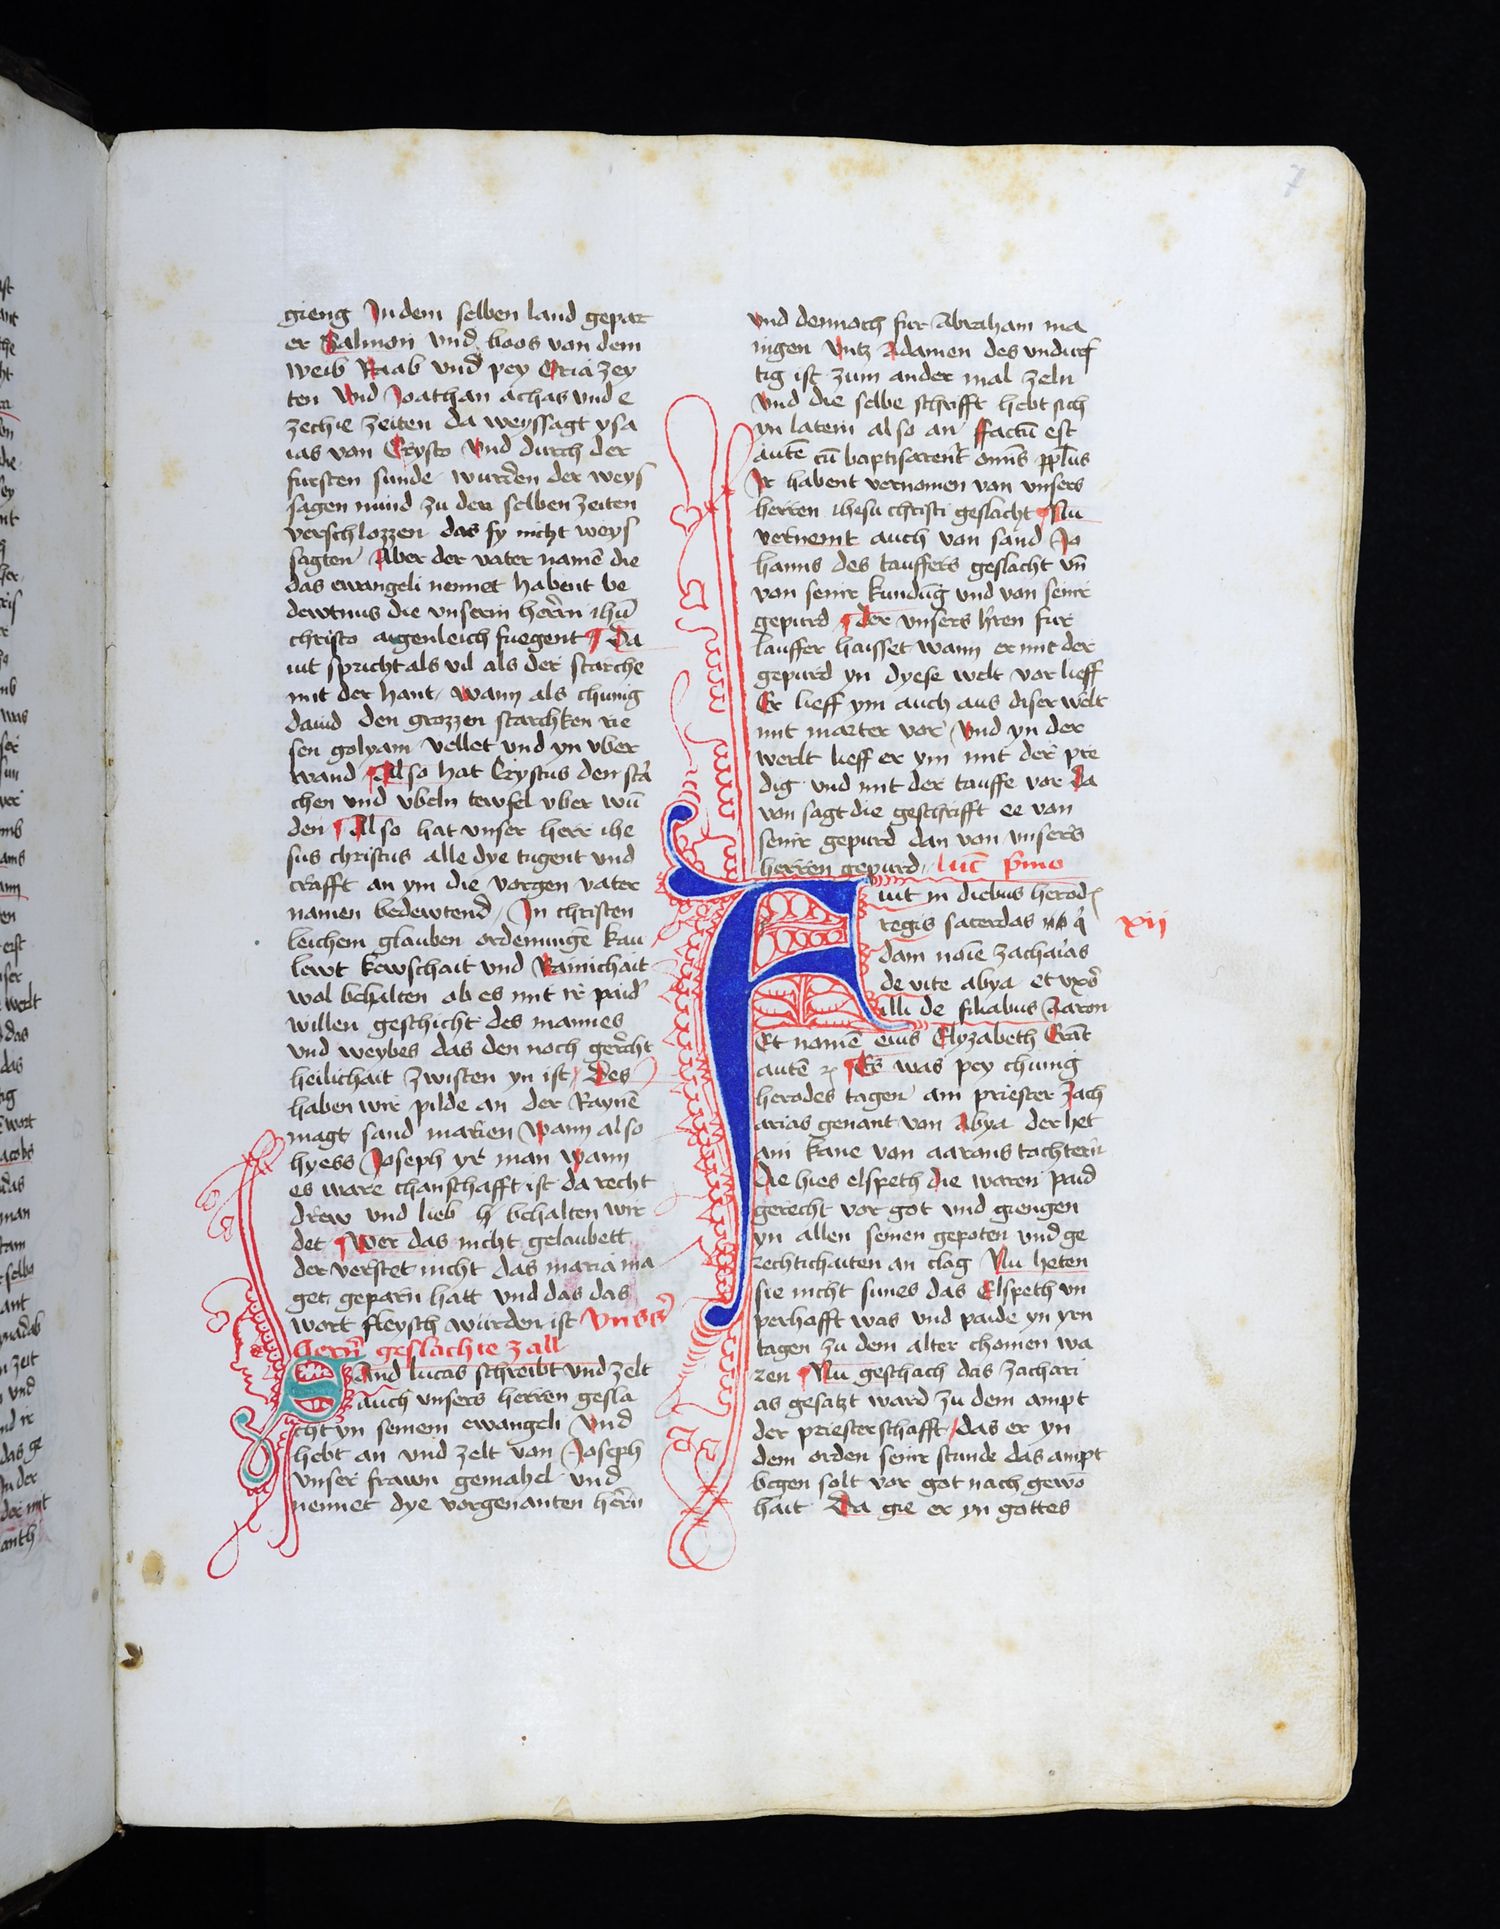 7
gieng Jn dem selben land gepar
er Salmon vnd boos von dem
weib Raab vnd pey Oria zey
ten Vnd Joathan achas vnd e
zechie zeiten da weyssagt ysa
ias von Crysto Vnd durch der
fursten sunde wurden der weys
sagen mund zu den selben zeiten
verschlozzen das sy nicht weys
sagten Aber der vater namē die
das ewangeli nennet habent be
dewtnus die vnserm herrn ihū
christo aigenleich fuegent ¶ Da
uit spricht als vil als der starche
mit der hant wann als chunig
dauid den grozzen starchken rie
sen golyam vellet vnd yn vber
wand ¶ Also hat Crystus den stā
chen vnd vbeln tewfel vber wū
den ¶ Also hat vnser herr ihe
sus christus alle dye tugent vnd
crafft an ym die vorgen vater
namen bedewtend Jn christen
leichem glauben ordenunge kan
lewt kewschait vnd Rainichait
wol behalten ob es mit ir paid
willen geschicht des mannes
vnd weybes das den noch gerecht
heilichait zwisten yn ist Des
haben wir pilde an der Raynē
magt sand marien wann also
hyess Joseph yr man wann
es ware chanschafft ist da recht
drew vnd lieb behalten wir
det ¶ Wer das nicht gelaubett
der verstet nicht das maria ma
get geparn hatt vnd das das
wort fleysch wurden ist Vnsers
herrn geslachte zall
Sand lucas schreibt vnd zelt
auch vnsers herren gesla
cht yn seinem ewangeli Vnd
hebt an vnd zelt von Joseph
vnser frawn gemahel vnd
nennet dye vorgenanten herrn
vnd dennoch fur Abraham ma
nigen Vntz Adamen des vndurf
tig ist zum ander mal zeln
Vnd die selbe schrifft hebt sich
yn latein also an Factū est
autē cū baptisarent omnis ppl̄us
Jr habent vernomen von vnsers
herren ihesu christi geslacht ¶ Nu
vernemt auch von sand Jo
hanns des tauffers geslacht vn̄
von seinr kundūg vnd von seinr
gepurd ¶ Der vnsers hren fur
lauffer haisset wann er mit der
gepurd yn dyese welt vor lieff
Er lieff ym auch aus diser welt
mit marter vor Vnd yn der
werlt lieff er ym mit der pre
dig vnd mit der tauffe vor Da
von sagt die geschrifft ee von
seinr gepurd dan von vnsers
herren gepurd luc̄ p̄mo
Fuit in diebus herodꝭ
regis sacerdas q̄
xij
dam noīe zacharias
de vite abya et vxor
illi de filiabus Aaron
Et nomē eius Elyzabeth Erāt
autē ꝛc ¶ Es was pey chunig
herodes tagen ain priester zach
arias genant von Abya der het
ain kane von aarons tochtern
die hies elspeth die waren paid
gerecht vor got vnd giengen
yn allen seinen gepoten vnd ge
rechtichaiten an clag Nu heten
sie nicht sunes das Elspeth vn
perhafft was vnd paide yn yrn
tagen zu dem alter chomen wa
ren ¶ Nu geschach das zachari
as gesatzt ward zu dem ampt
der priesterschafft das er yn
dem orden seinr stunde das ampt
begen solt vor got nach gewō
hait Da gie er yn gottes